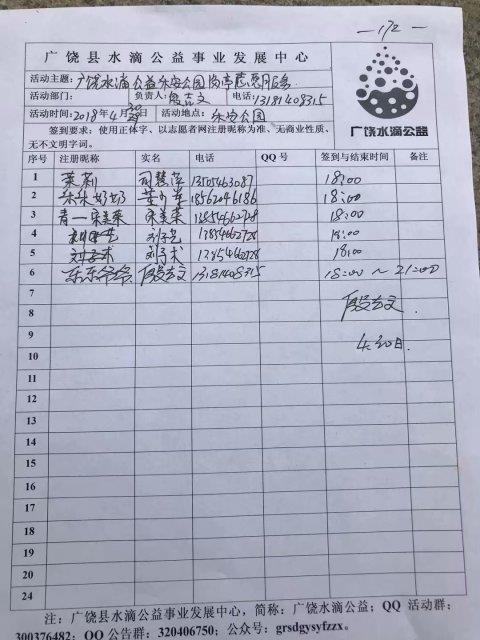 —172—
广饶县水滴公益事业发展中心
活动主题：广饶水滴公益乐安公园岗亭志愿服务
活动部门： 负责人： 电话：13181408315
活动时间：2018年4月 活动地点：乐安公园
签到要求：使用正体字、以志愿者网注册昵称为准、无商业性质、
无不文明字词。
广饶水滴公益
序号 注册昵称 实名 电话 QQ号 签到与结束时间 备注
1 茉莉 司慧萍 13505463087 18:00
2 奶奶 18562046186 18:00
3 青一宋美荣 宋美荣 13854662728 18:00
4 13854662728 18:00
5 13854662728 18:00
6 东东爷爷 13181408315 18:00~21:00
7
8
9 4.30日
10
11
12
13
14
15
16
17
18
19
20
21
22
23
24
注：广饶县水滴公益事业发展中心，简称：广饶水滴公益；QQ 活动群：
300376482；QQ公告群：320406750；公众号：grsdgysyfzzx。